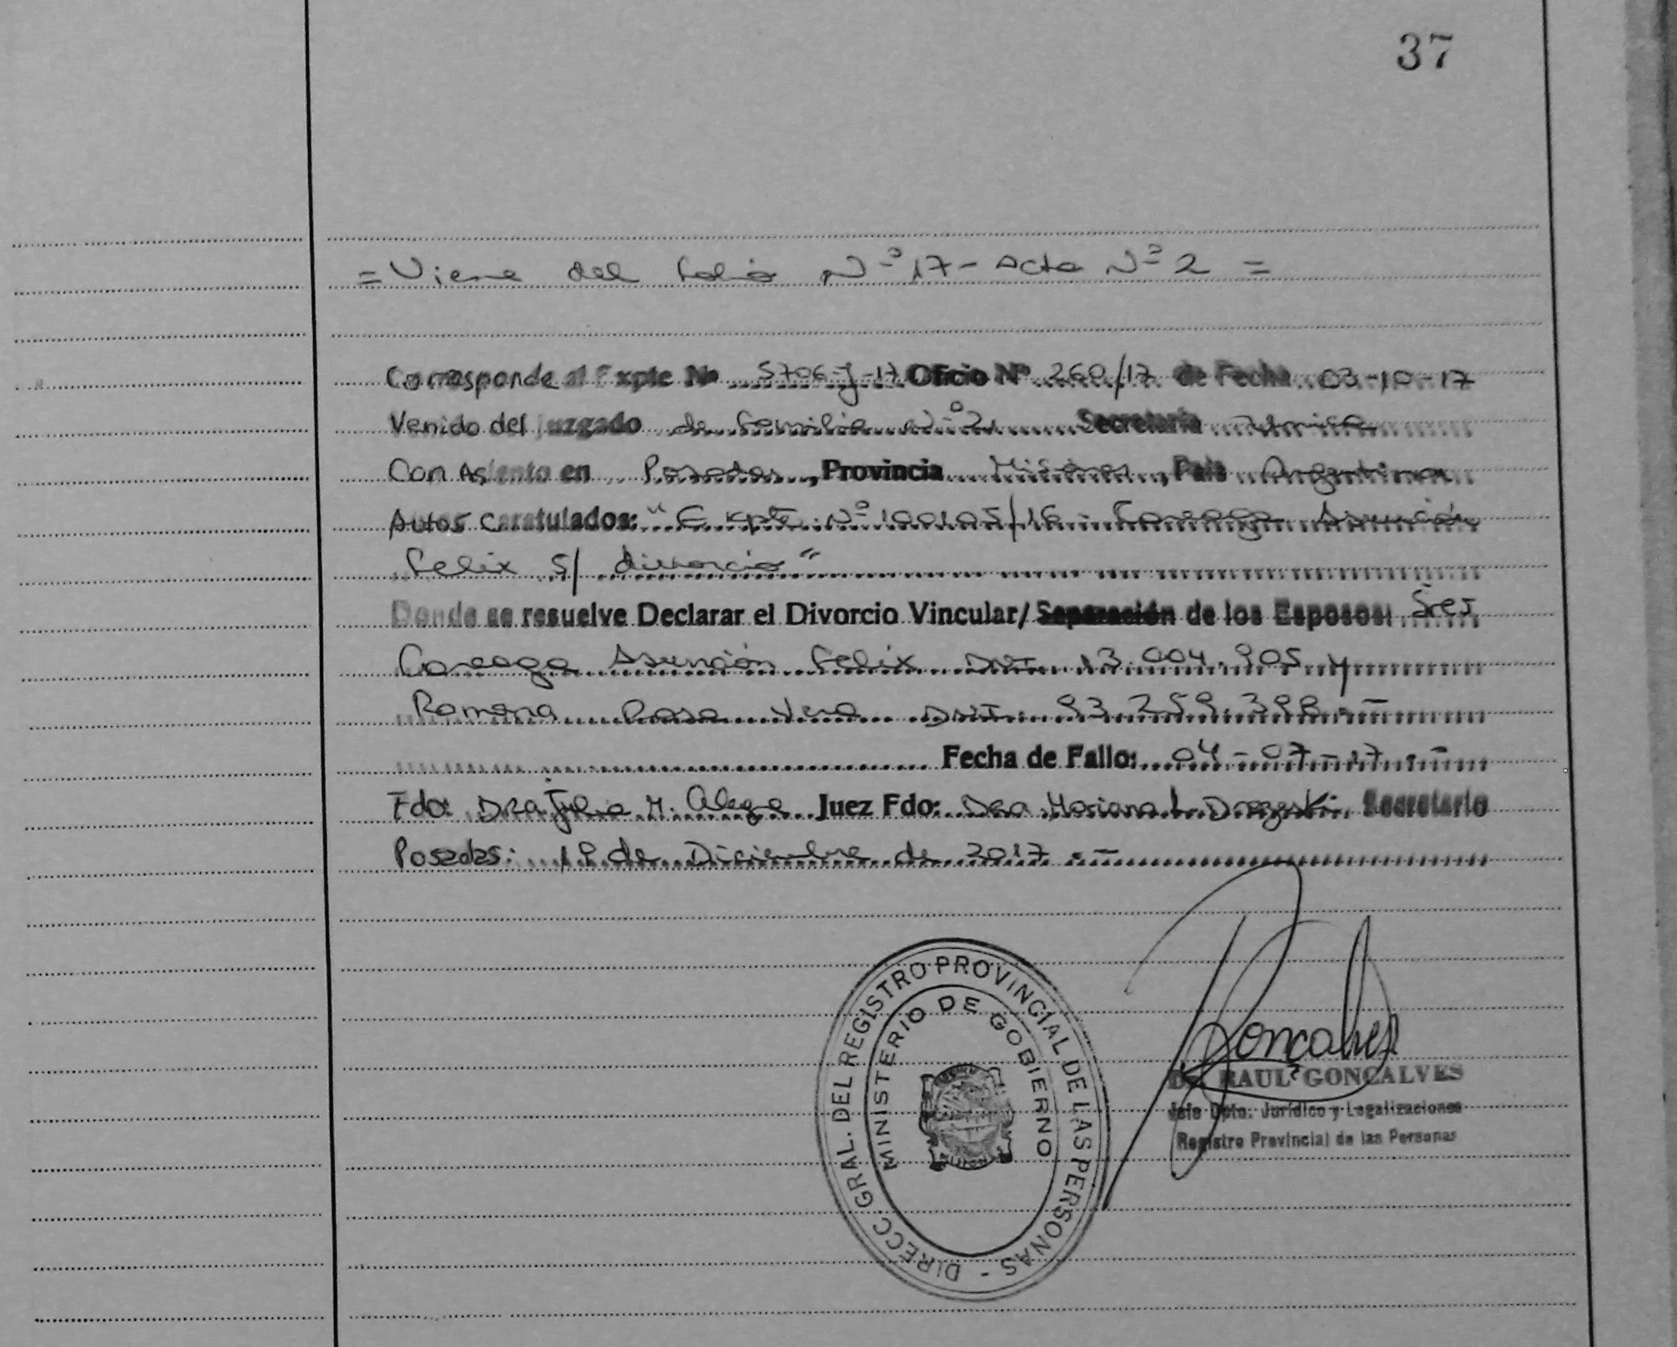 37
= Viene del folio Nº 17 - Acta Nº 2 =
Corresponde al Expte Nº 5706-J-17 Oficio Nº 260/17 de Fecha 03-10-17
Venido del juzgado de familia Nº 2 Secretaría Unica
Con Asiento en Posadas, Provincia Misiones, País Argentina
Autos caratulados: "Expte Nº 100105/16 - Careaga Asunción
Felix s/ divorcio"
Donde se resuelve Declarar el Divorcio Vincular/ Separación de los Esposos: Sres
Careaga Asunción Felix DNI 13.004.905 y
Ramona Rosa Vera DNI 93.259.398.-
Fecha de Fallo: 04-07-17.-
Fdo: Dra Julia M. Alegre Juez Fdo: Dra Mariana L. Secretario
Posadas: 19 de Diciembre de 2017.-
DIRECC GRAL. DEL REGISTRO PROVINCIAL DE LAS PERSONAS -
MINISTERIO DE GOBIERNO
Gonçalves
Dr. RAUL GONÇALVES
Jefe Dpto. Jurídico y Legalizaciones
Registro Provincial de las Personas